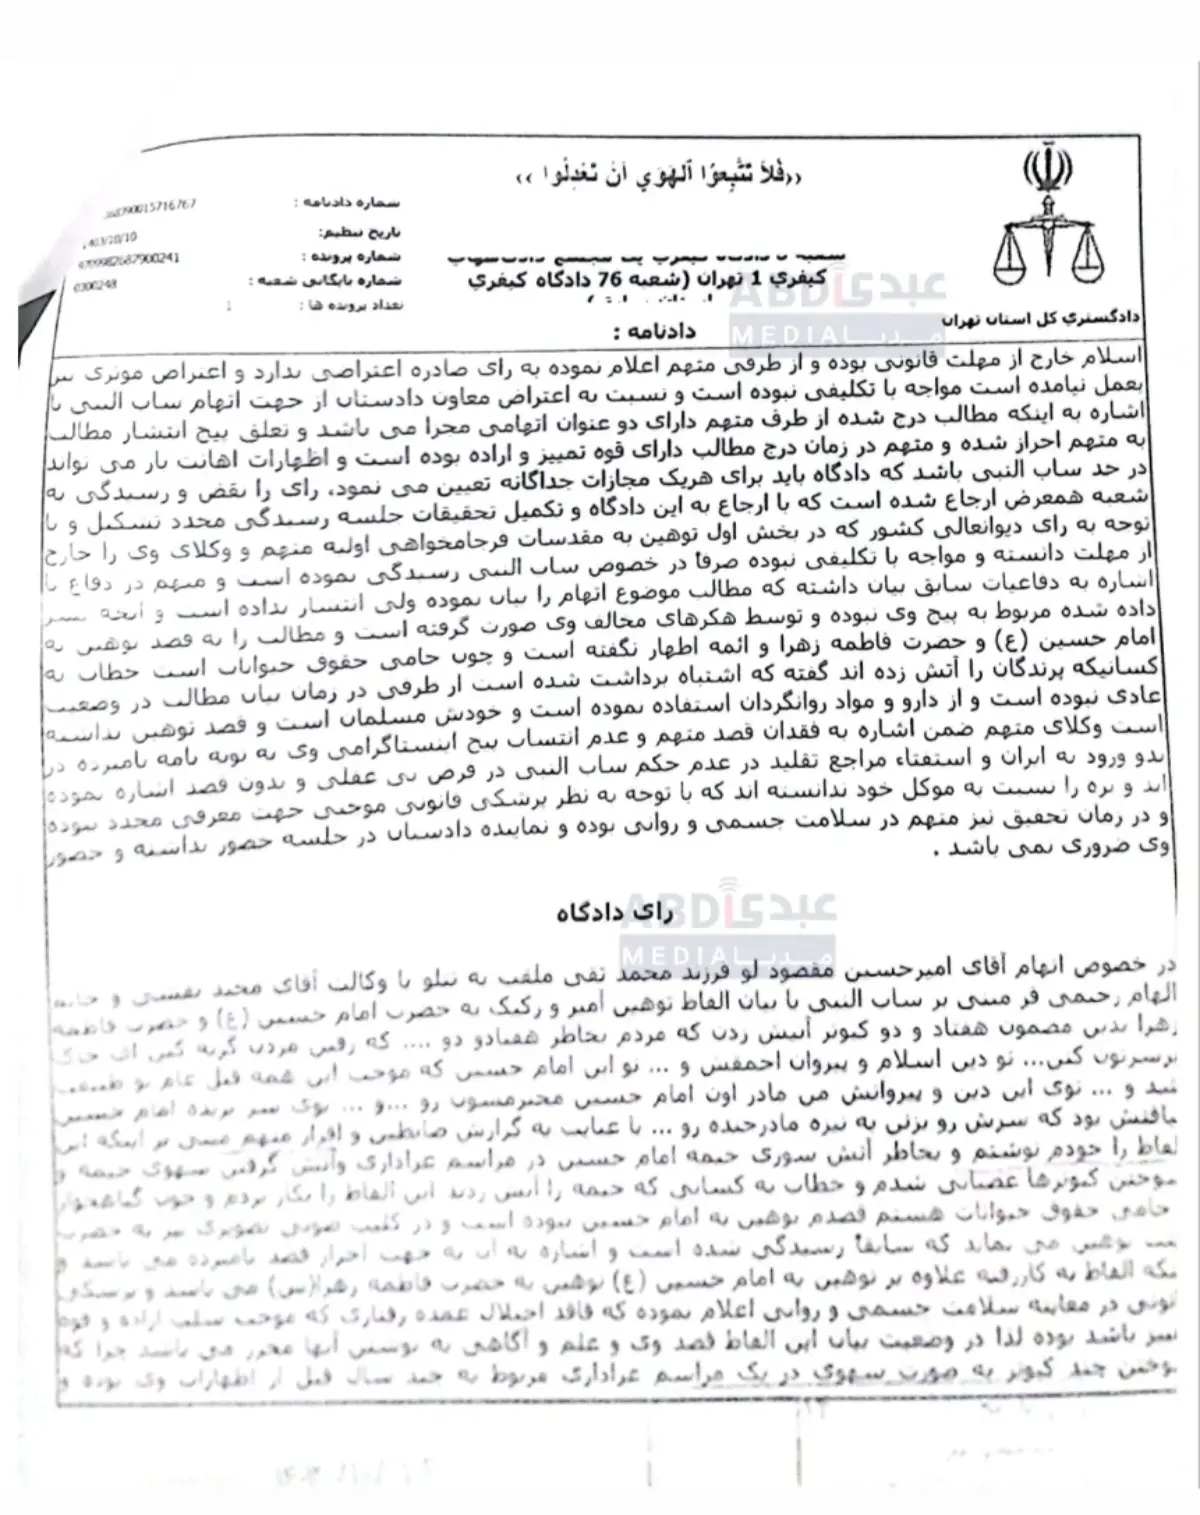 «فَلَا تَتَّبِعُوا الْهَوَي اَنْ تَعْدِلُوا»
شماره دادنامه : 368390015716767
تاریخ تنظیم: 1403/10/10
شماره پرونده : 9709982687900241
شماره بایگانی شعبه : 0300248
تعداد پرونده ها : 1
کیفری 1 تهران (شعبه 76 دادگاه کیفری
دادگستری کل استان تهران
ABDI عبدی
MEDIA مدیا
دادنامه :
اسلام خارج از مهلت قانونی بوده و از طرفی متهم اعلام نموده به رای صادره اعتراضی ندارد و اعتراض موثری نیز
بعمل نیامده است مواجه با تکلیفی نبوده است و نسبت به اعتراض معاون دادستان از جهت اتهام ساب النبی با
اشاره به اینکه مطالب درج شده از طرف متهم دارای دو عنوان اتهامی مجزا می باشد و تعلق پیج انتشار مطالب
به متهم احراز شده و متهم در زمان درج مطالب دارای قوه تمییز و اراده بوده است و اظهارات اهانت بار می تواند
در حد ساب النبی باشد که دادگاه باید برای هریک مجازات جداگانه تعیین می نمود، رای را نقض و رسیدگی به
شعبه همعرض ارجاع شده است که با ارجاع به این دادگاه و تکمیل تحقیقات جلسه رسیدگی مجدد تشکیل و با
توجه به رای دیوانعالی کشور که در بخش اول توهین به مقدسات فرجامخواهی اولیه متهم و وکلای وی را خارج
از مهلت دانسته و مواجه با تکلیفی نبوده صرفا در خصوص ساب النبی رسیدگی نموده است و متهم در دفاع با
اشاره به دفاعیات سابق بیان داشته که مطالب موضوع اتهام را بیان نموده ولی انتشار نداده است و آنچه نشر
داده شده مربوط به پیج وی نبوده و توسط هکرهای مخالف وی صورت گرفته است و مطالب را به قصد توهین به
امام حسین (ع) و حضرت فاطمه زهرا و ائمه اظهار نگفته است و چون حامی حقوق حیوانات است خطاب به
کسانیکه پرندگان را آتش زده اند گفته که اشتباه برداشت شده است از طرفی در زمان بیان مطالب در وضعیت
عادی نبوده است و از دارو و مواد روانگردان استفاده نموده است و خودش مسلمان است و قصد توهین نداشته
است وکلای متهم ضمن اشاره به فقدان قصد متهم و عدم انتساب پیج اینستاگرامی وی به توبه نامه نامبرده در
بدو ورود به ایران و استفتاء مراجع تقلید در عدم حکم ساب النبی در فرض بی عقلی و بدون قصد اشاره نموده
اند و بزه را نسبت به موکل خود ندانسته اند که با توجه به نظر پزشکی قانونی موجبی جهت معرفی مجدد نبوده
و در زمان تحقیق نیز متهم در سلامت جسمی و روانی بوده و نماینده دادستان در جلسه حضور نداشته و حضور
وی ضروری نمی باشد .
ABDI عبدی
MEDIA مدیا
رای دادگاه
در خصوص اتهام آقای امیرحسین مقصود لو فرزند محمد تقی ملقب به تتلو با وکالت آقای مجید نقشی و خانم
الهام رحیمی فر مبنی بر ساب النبی با بیان الفاظ توهین آمیز و رکیک به حضرت امام حسین (ع) و حضرت فاطمه
زهرا بدین مضمون هفتاد و دو کبوتر آتیش زدن که مردم بخاطر هفتادو دو .... که رفتن مردن گریه کنن ای خاک
برسرتون کنن... تو دین اسلام و پیروان احمقش و ... تو این امام حسین که موجب این همه قتل عام تو طبیعت
شد و ... توی این دین و پیروانش من مادر اون امام حسین محترمتون رو ...و ... توی سر بریده امام حسین
بافتش بود که سرش رو بزنی به نیزه مادرجنده رو ... با عنایت به گزارش ضابطین و اقرار متهم مبنی بر اینکه این
لفاظ را خودم نوشتم و بخاطر آتش سوزی خیمه امام حسین در مراسم عزاداری وآتش گرفتن سهوی خیمه و
سوختن کبوترها عصبانی شدم و خطاب به کسانی که خیمه را آتش زدند این الفاظ را بکار بردم و چون گیاهخوار
حامی حقوق حیوانات هستم قصدم توهین به امام حسین نبوده است و در کلیپ صوتی تصویری نیز به حضرت
توهین می نماید که سابقا رسیدگی شده است و اشاره به آن به جهت احراز قصد نامبرده می باشد و
ینکه الفاظ به کاررفته علاوه بر توهین به امام حسین (ع) توهین به حضرت فاطمه زهرا(س) می باشد و پزشکی
انونی در معاینه سلامت جسمی و روانی اعلام نموده که فاقد اختلال عمده رفتاری که موجب سلب اراده و قوه
تمییز باشد بوده لذا در وضعیت بیان این الفاظ قصد وی و علم و آگاهی به نوشتن آنها محرز می باشد چرا که
سوختن چند کبوتر به صورت سهوی در یک مراسم عزاداری مربوط به چند سال قبل از اظهارات وی بوده و